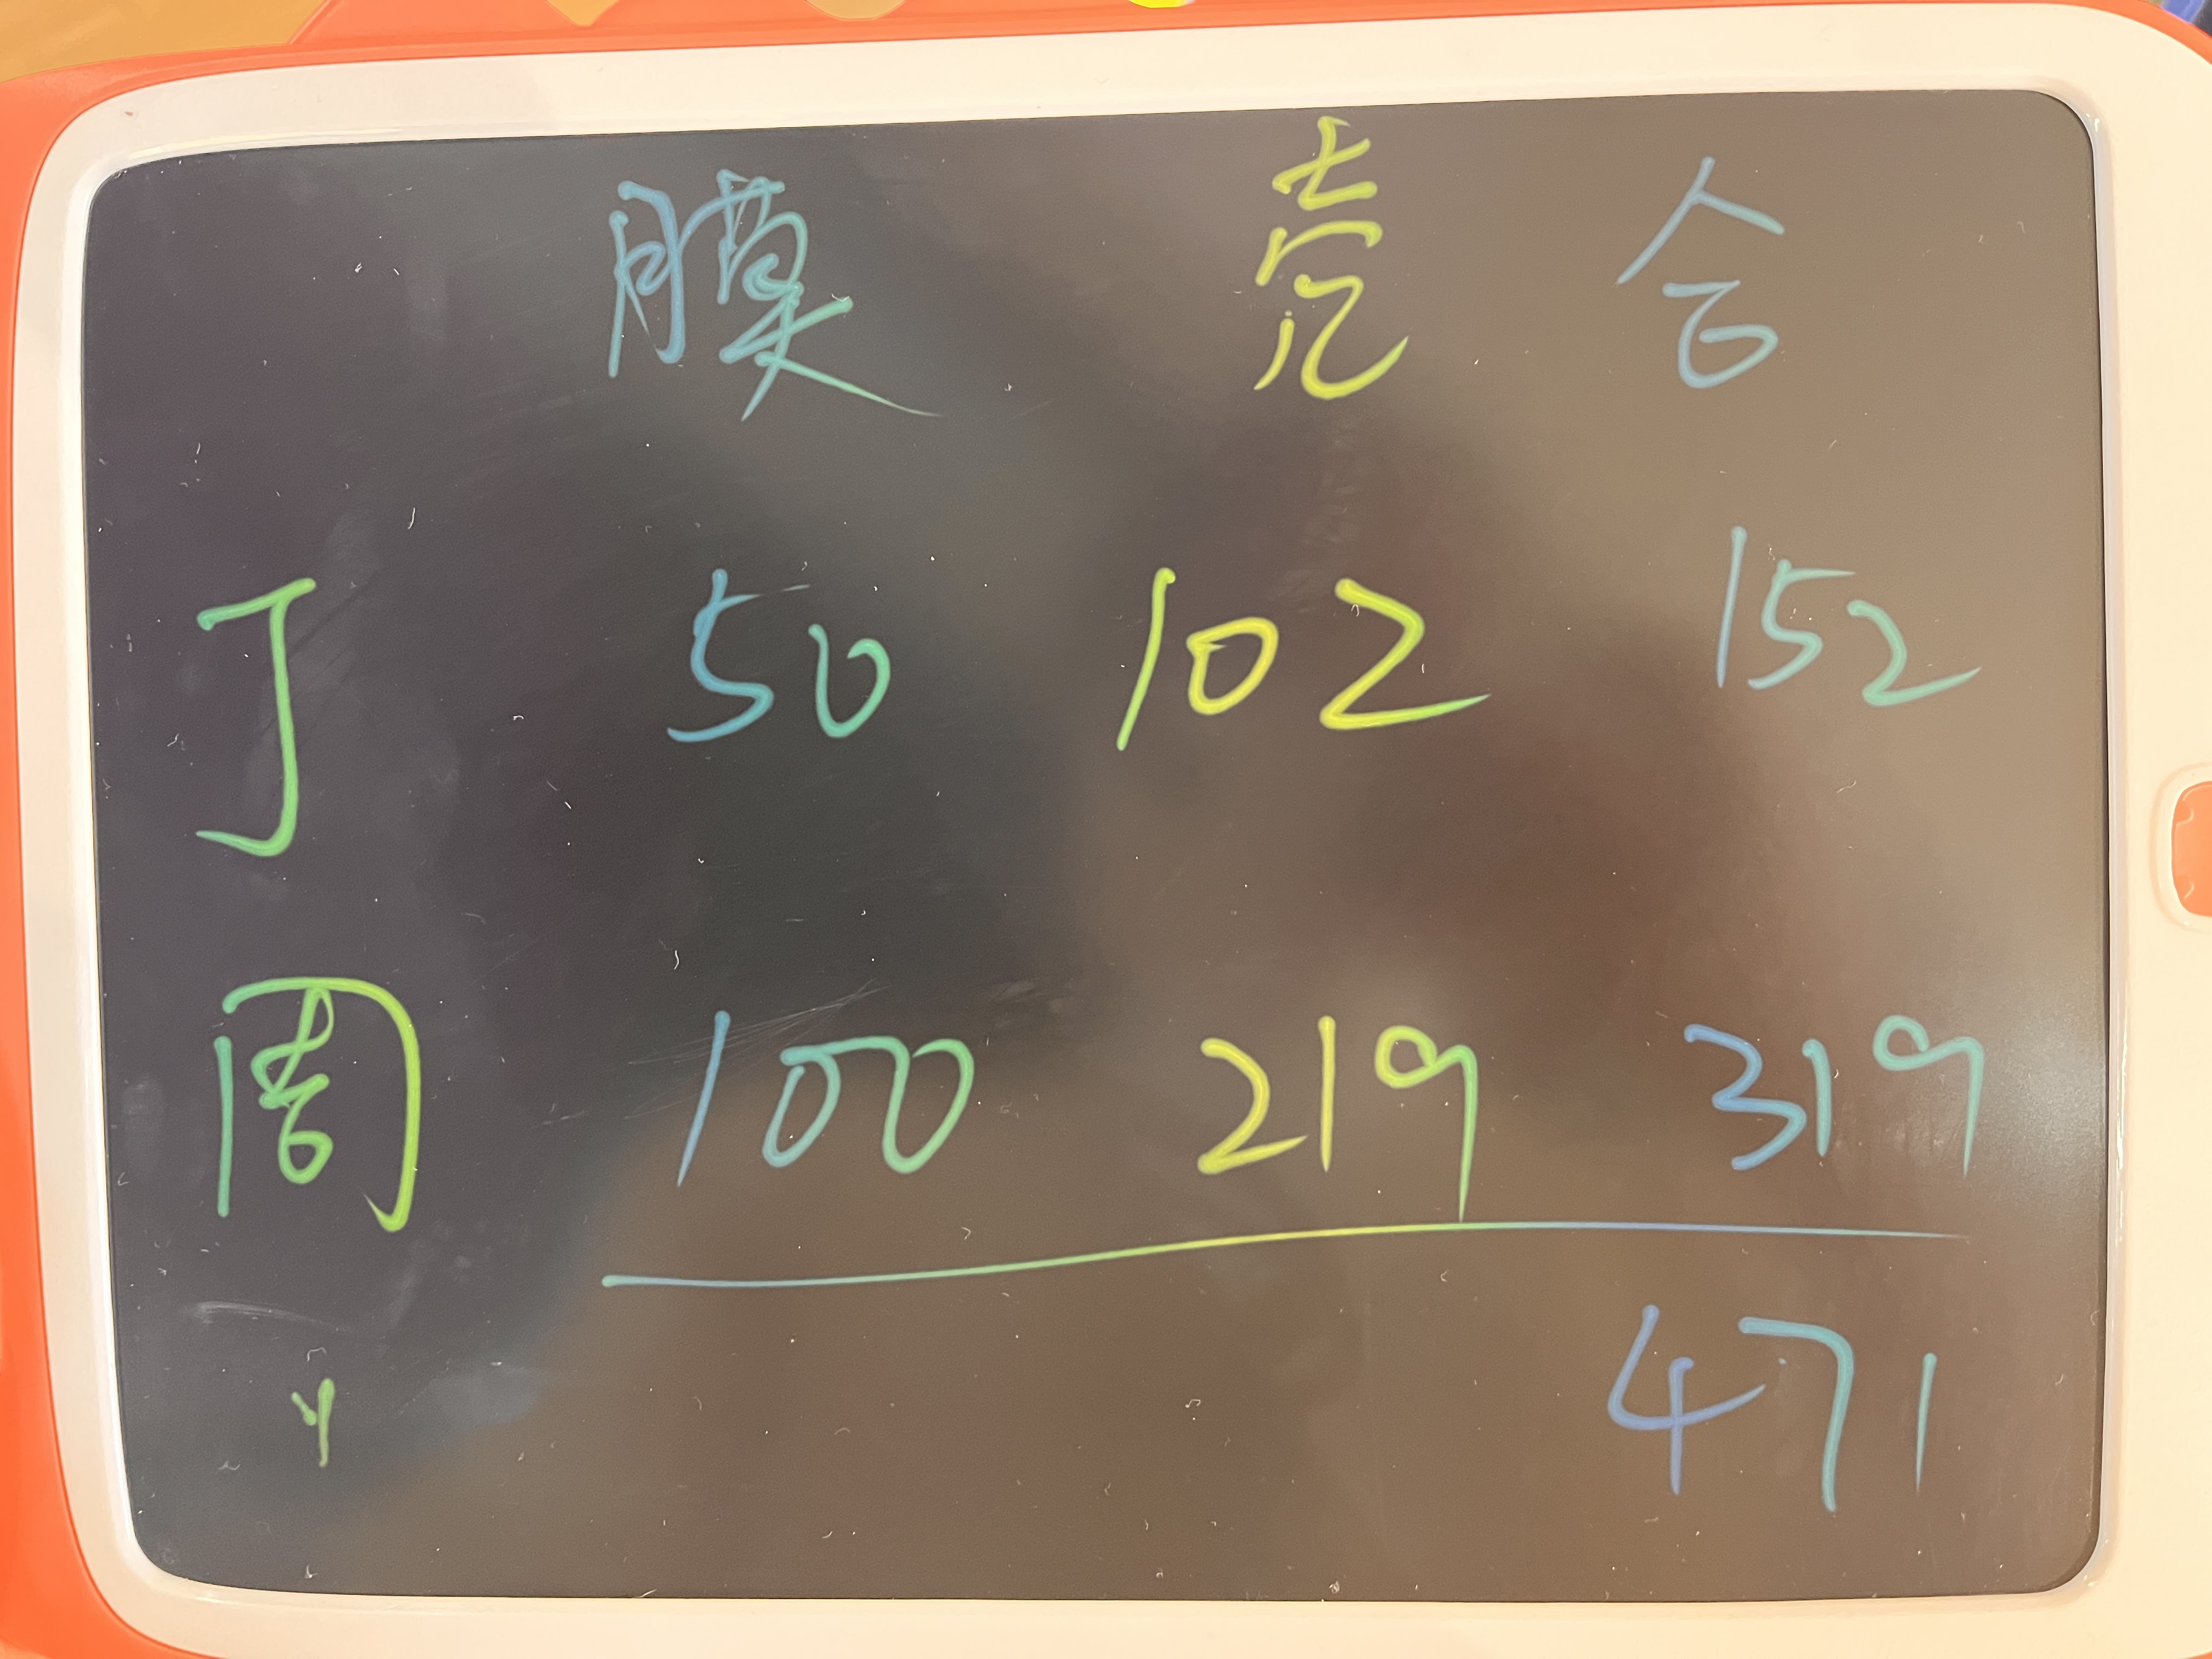 膜 壳 合
丁 50 102 152
周 100 219 319
471